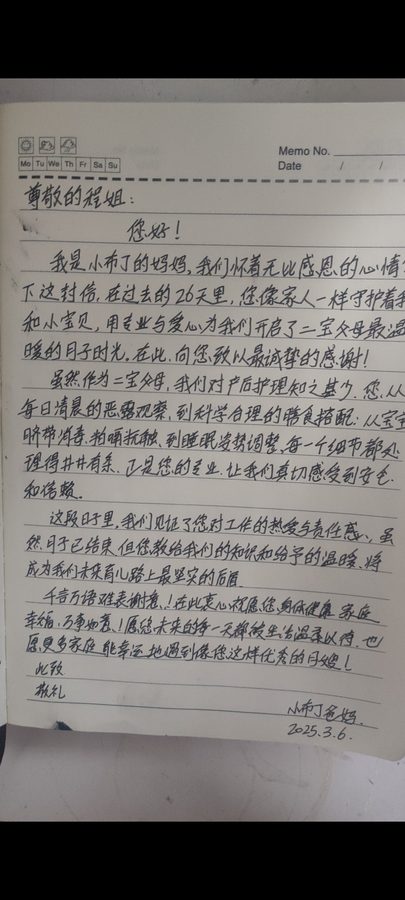 Memo No.
Mo Tu We Th Fr Sa Su
Date / /
尊敬的程姐：
您好！
我是小布丁的妈妈，我们怀着无比感恩的心情
下这封信，在过去的26天里，您像家人一样守护着
和小宝贝，用专业与爱心为我们开启了二宝父母最温
暖的月子时光，在此，向您致以最诚挚的感谢！
虽然作为二宝父母，我们对产后护理知之甚少，您从
每日清晨的恶露观察，到科学合理的膳食搭配；从宝宝
脐带消毒、拍嗝抚触、到睡眠姿势调整，每一个细节都处
理得井井有条，正是您的专业，让我们真切感受到安心
和信赖。
这段日子里，我们见证了您对工作的热爱与责任感，虽
然月子已结束，但您教给我们的知识和给予的温暖，将
成为我们未来育儿路上最坚实的后盾
千言万语难表谢意！在此衷心祝愿您，身体健康 家庭
幸福，万事如意！愿您未来的每一天都被生活温柔以待，也
愿更多家庭 能幸运地遇到像您这样优秀的月嫂！
此致
敬礼
小布丁爸妈
2025.3.6.